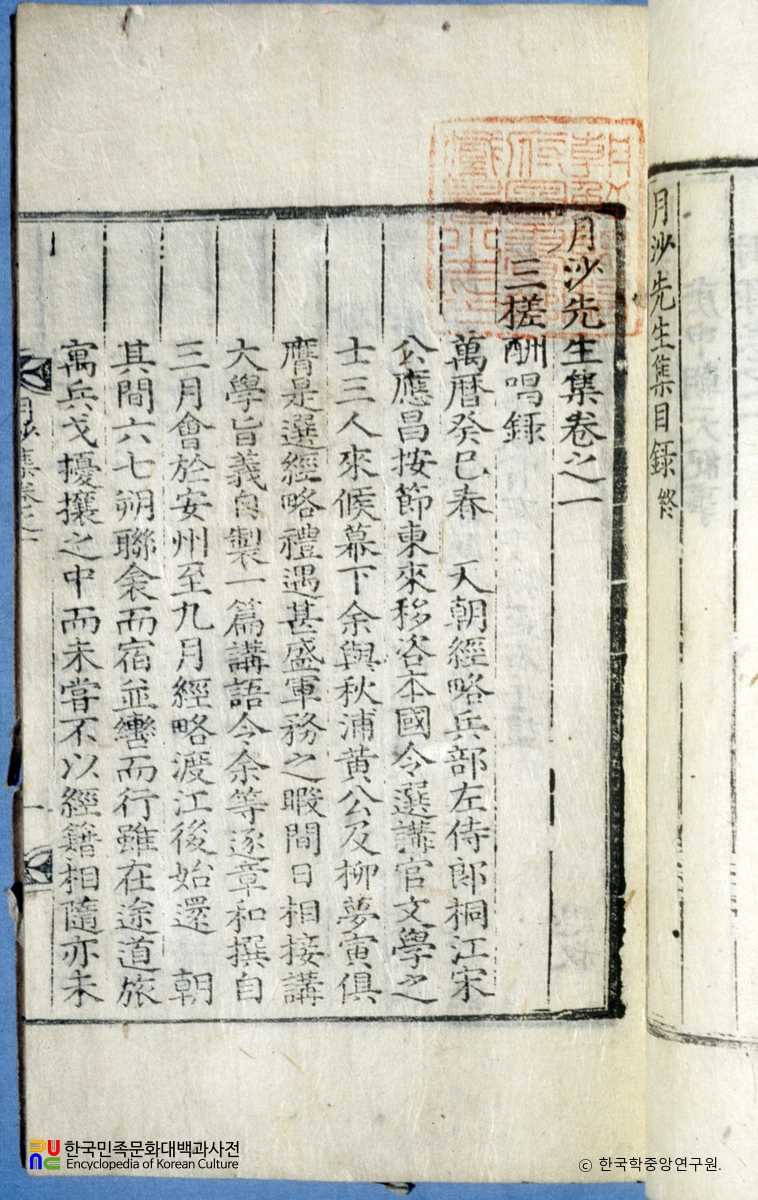 月沙先生集目録終
月沙先生集卷之一
三槎酬唱録
萬曆癸巳春 天朝經略兵部左侍郎桐江宋
公應昌按節東來移咨本國令選講官文學之
士三人來候幕下余與秋浦黃公及柳夢寅俱
膺是選經略禮遇甚盛軍務之暇間日相接講
大學旨義自製一篇講語令余等逐章和撰自
三月會於安州至九月經略渡江後始還 朝
其間六七朔聯衾而宿並轡而行雖在途道旅
寓兵戈擾攘之中而未嘗不以經籍相隨亦未
月沙集卷之一
一
한국민족문화대백과사전
Encyclopedia of Korean Culture
ⓒ 한국학중앙연구원.